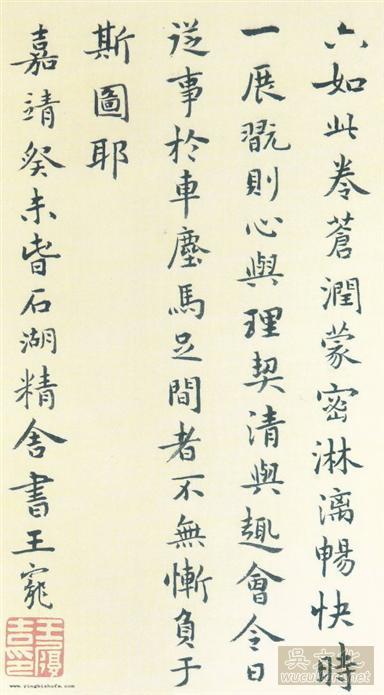 六如此卷蒼潤蒙密淋漓暢快時
一展翫則心與理契清與趣會今日
從事於車塵馬足間者不無慚負于
斯圖耶
嘉靖癸未旾石湖精舍書王寵
王履吉印
www.yingbishufa.com
吳文化